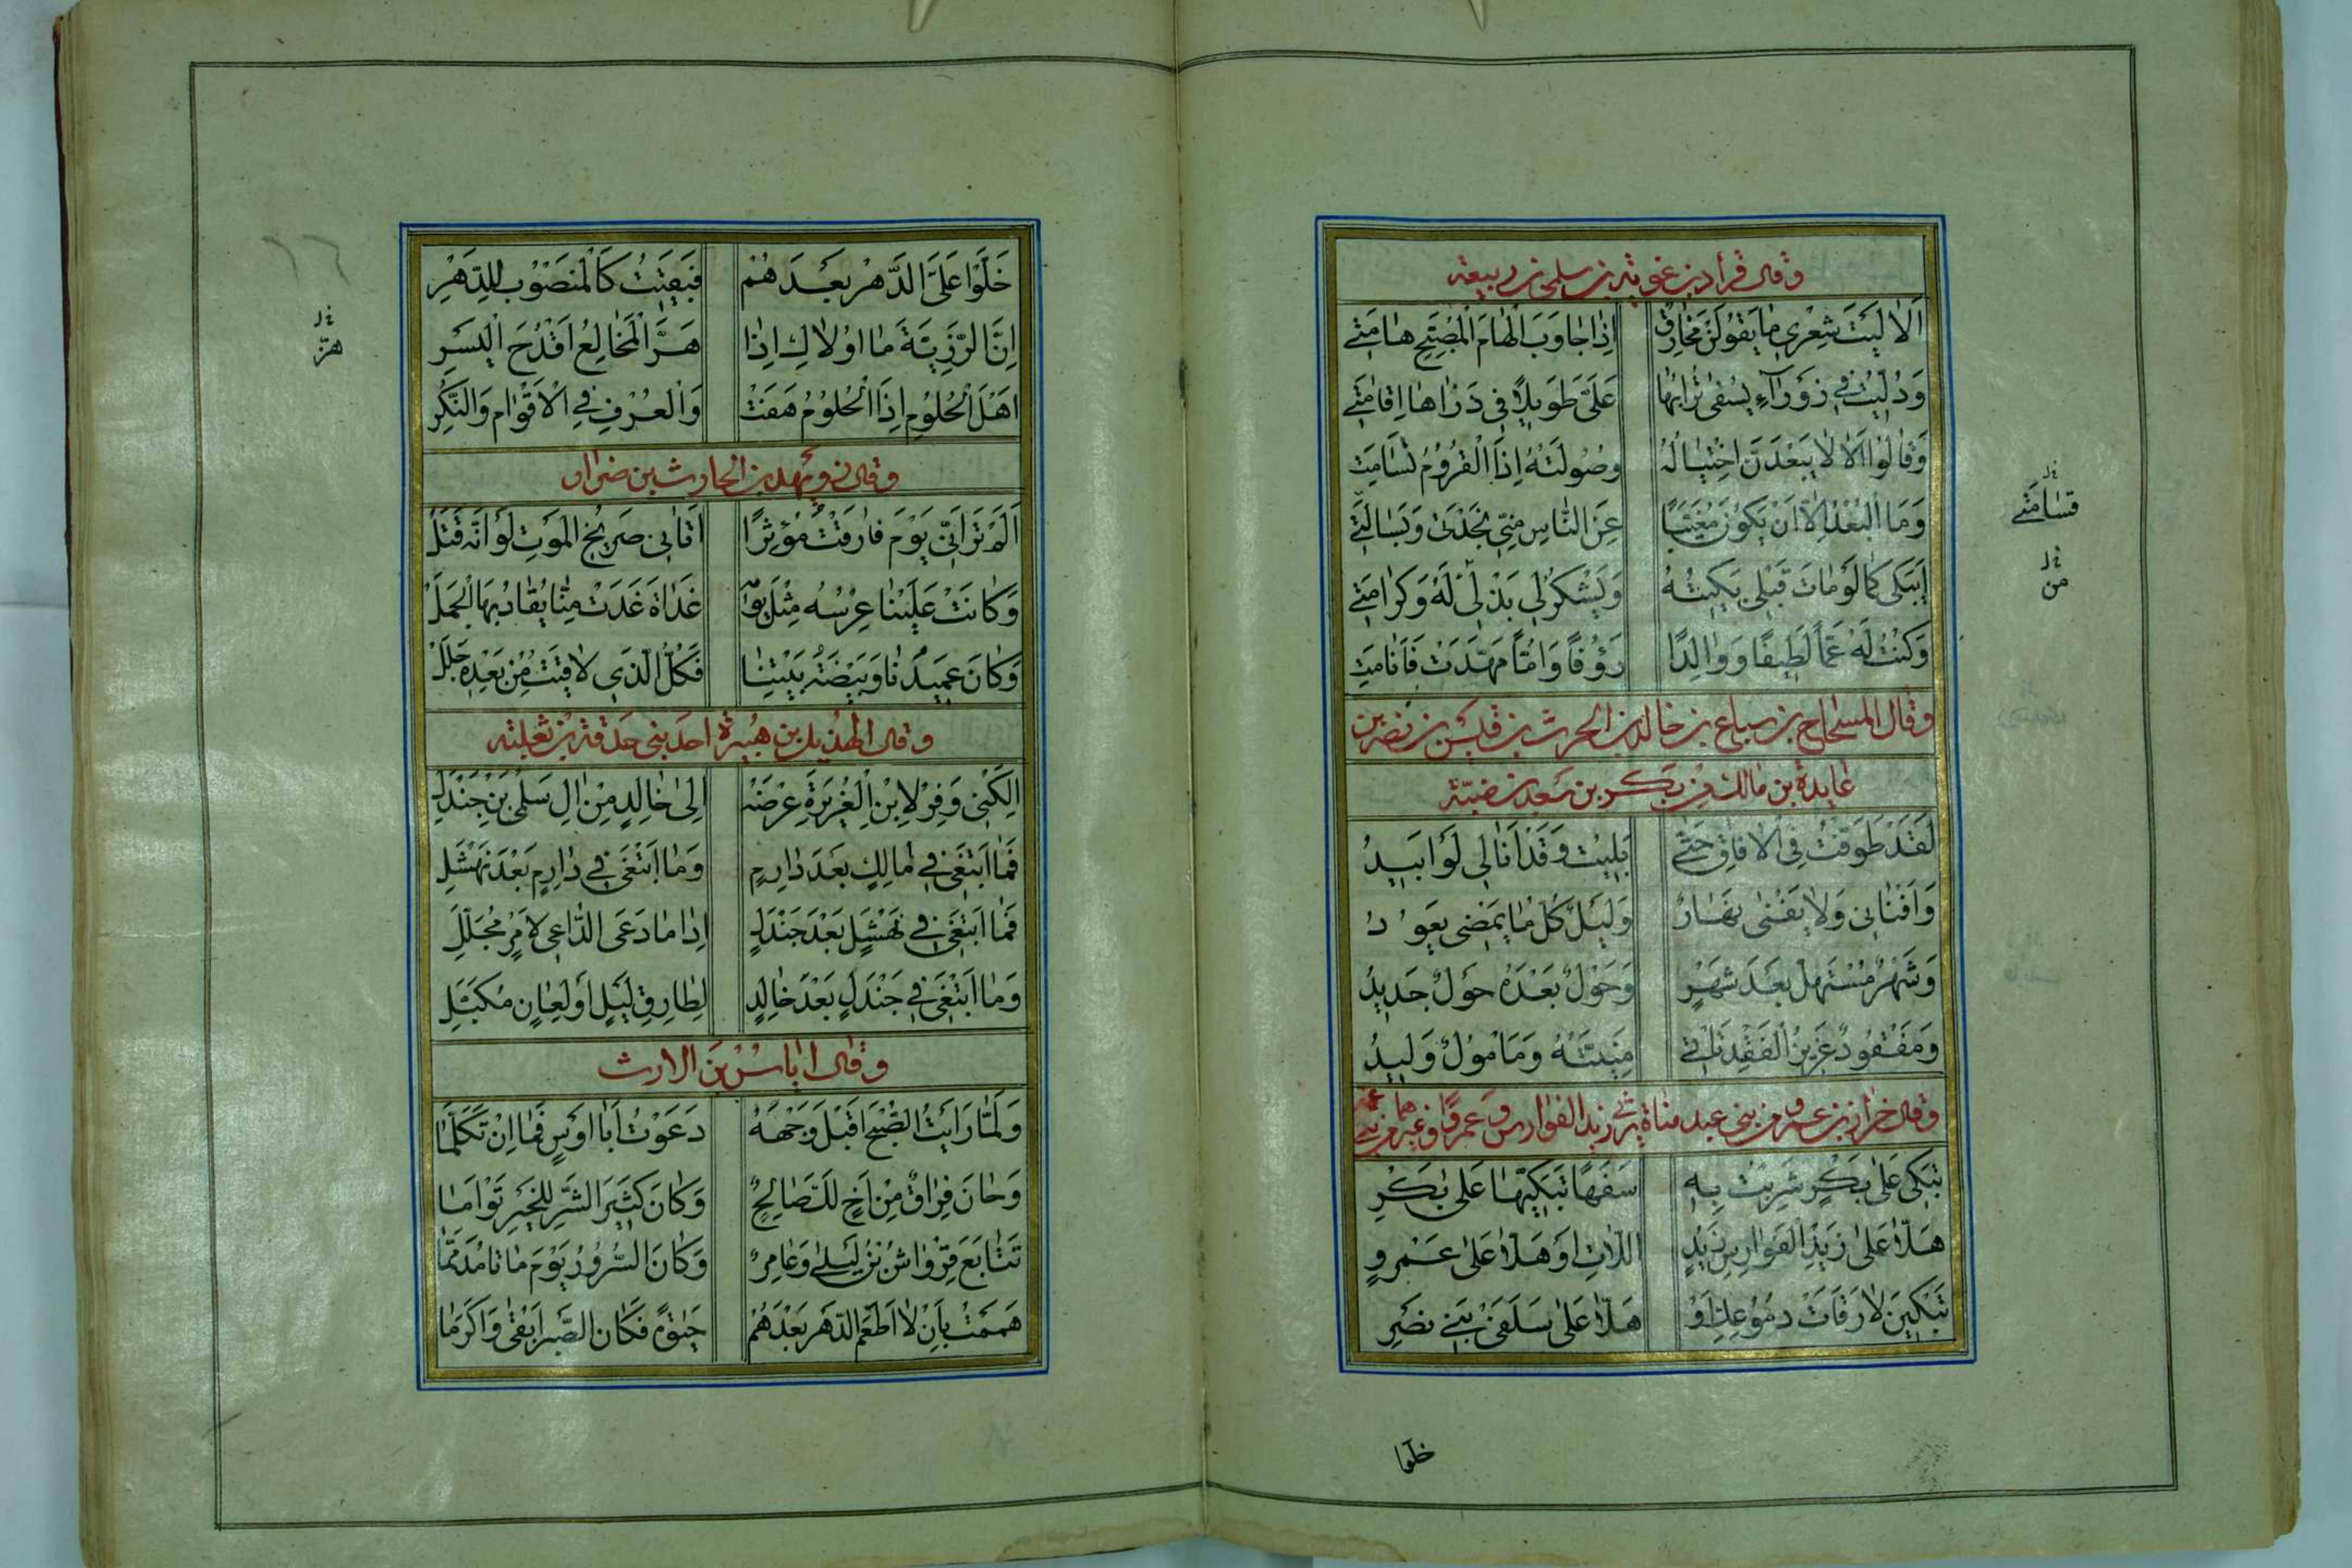 وقال قراد بن غوية بن سلمى بن ربيعة
اَلَا لَيْتَ شِعْرِي مَا يَقُولَنْ مُخَارِقٌ اِذَا جَاوَبَ الْهَامَ الْمُصَيِّحَ هَامَتِي
وَدُلِّيتُ فِي زَوْرَاءَ يُسْفَى تُرَابُهَا عَلَيَّ طَوِيلًا فِي ذَرَاهَا اِقَامَتِي
وَقَالُوا اَلَا لَا يَبْعَدَنَّ اخْتِيَالُهُ وَصَوْلَتُهُ اِذَا الْقُرُومُ تَسَامَتِ
وَمَا الْبُعْدُ اِلَّا اَنْ يَكُونَ مُغَيَّبًا عَنِ النَّاسِ مِنِّي نَجْدَتِي وَبَسَالَتِي
اَيَبْكِي كَمَا لَوْ مَاتَ قَبْلِي بَكَيْتُهُ وَيَشْكُرُ لِي بَذْلِي لَهُ وَكَرَامَتِي
وَكُنْتُ لَهُ عَمًّا لَطِيفًا وَوَالِدًا رَؤُفًا وَاُمًّا مَهَّدَتْ فَاَنَامَتِ
قسامتي
من
وقال المسحاج بن سباع بن خالد بن الحرث بن قيس بن نصر بن
عايدة بن مالك بن بكر بن سعد بن ضبة
لَقَدْ طَوَّفْتُ فِي الْاٰفَاقِ حَتَّى بَلِيتُ وَقَدْ اَنَا لِي لَوْ اَبِيدُ
وَاَفْنَانِي وَلَا يَفْنَى نَهَارٌ وَلَيْلٌ كُلَّ مَا يَمْضِي يَعُودُ
وَشَهْرٌ مُسْتَهِلٌّ بَعْدَ شَهْرٍ وَحَوْلٌ بَعْدَهُ حَوْلٌ جَدِيدُ
وَمَفْقُودٌ عَزِيزُ الْفَقْدِ تَاْتِي مَنِيَّتُهُ وَمَاْمُولٌ وَلِيدُ
وقال حزاز بن عمرو من بني عبد مناة يرثي زيد الفوارس وعمرًا وغيرهما من بني عمه
تَبْكِي عَلَى بَكْرٍ شَرِبْتُ بِهِ سَفَهًا تَبَكِّيهَا عَلَى بَكْرِ
هَلَّا عَلَى زَيْدِ الْفَوَارِسِ زَيْدِ اللَّاتِ اَوْ هَلَّا عَلَى عَمْرٍو
تَبْكِينَ لَا رَقَاَتْ دُمُوعُكِ اَوْ هَلَّا عَلَى سَلَفَيْ بَنِي نَصْرِ
خلوا
خَلَّوْا عَلَيَّ الدَّهْرَ بَعْدَهُمْ فَبَقِيتُ كَالْمَنْصُوبِ لِلدَّهْرِ
اِنَّ الرَّزِيَّةَ مَا اُولَاكِ اِذَا هَرَّ الْمُخَالِعُ اَقْدُحَ الْيَسْرِ
هزّ
اَهْلَ الْحُلُومِ اِذَا الْحُلُومُ هَفَتْ وَالْعُرْفِ فِي الْاَقْوَامِ وَالنُّكْرِ
وقال زويهد بن الحارث بن ضرار
اَلَمْ تَرَ اَنِّي يَوْمَ فَارَقْتُ مُؤْثِرًا اَتَانِي صَرِيحُ الْمَوْتِ لَوْ اَنَّهُ قَتَلْ
وَكَانَتْ عَلَيْنَا عِرْسُهُ مِثْلَ يَوْمِهِ غَدَاةَ غَدَتْ مِنَّا يُقَادُ بِهَا الْجَمَلْ
وَكَانَ عَمِيدَنَا وَبَيْضَةَ بَيْتِنَا فَكُلُّ الَّذِي لَاقَيْتُ مِنْ بَعْدِهِ جَلَلْ
وقال الهذيل بن هبيرة احد بني حدقة بن ثعلبة
اَلِكْنِي وَفِرْ لِابْنِ الْغُرَيْرَةِ عِرْضَهُ اِلَى خَالِدٍ مِنْ اٰلِ سَلْمَى بْنِ جَنْدَلِ
فَمَا اَبْتَغِي فِي مَالِكٍ بَعْدَ دَارِمٍ وَمَا اَبْتَغِي فِي دَارِمٍ بَعْدَ نَهْشَلِ
فَمَا اَبْتَغِي فِي نَهْشَلٍ بَعْدَ جَنْدَلٍ اِذَا مَا دَعَى الدَّاعِي لِاَمْرٍ مُجَلَّلِ
وَمَا اَبْتَغِي فِي جَنْدَلٍ بَعْدَ خَالِدٍ لِطَارِقِ لَيْلٍ اَوْ لِعَانٍ مُكَبَّلِ
وقال اياس بن الارث
وَلَمَّا رَاَيْتُ الصُّبْحَ اَقْبَلَ وَجْهُهُ دَعَوْتُ اَبَا اَوْسٍ فَمَا اِنْ تَكَلَّمَا
وَحَانَ فِرَاقٌ مِنْ اَخٍ لَكَ صَالِحٍ وَكَانَ كَثِيرَ الشَّرِّ لِلْخَيْرِ تَوْاَمَا
تَتَابَعَ قِرْوَاشُ بْنُ لَيْلَى وَعَامِرٌ وَكَانَ السُّرُورُ يَوْمَ مَاتَا مُدَمَّمَا
هَمَمْتُ بِاَنْ لَا اَطْعَمَ الدَّهْرَ بَعْدَهُمْ حَيٰوةً فَكَانَ الصَّبْرُ اَبْقَى وَاَكْرَمَا